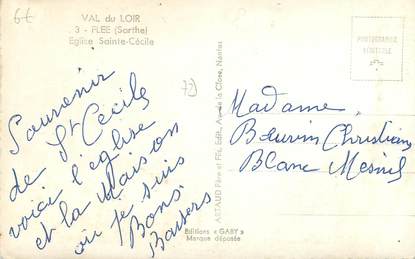 6€
VAL du LOIR
3 - FLEE (Sarthe)
Eglise Sainte-Cécile
Souvenir
de St Cécile
voici l'église
et la Maison
où je suis
Bons
Baisers
ARTAUD Père et Fils, Edit., Ave de la Close, Nantes
Editions « GABY »
Marque déposée
PHOTOGRAPHIE
VÉRITABLE
Madame
Beurin Christiane
Blanc Mesnil